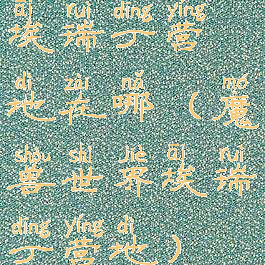 āi ruì dīng yíng
埃瑞丁营
dì zài nǎ mó
地在哪（魔
shòu shì jiè āi ruì
兽世界埃瑞
dīng yíng dì
丁营地）